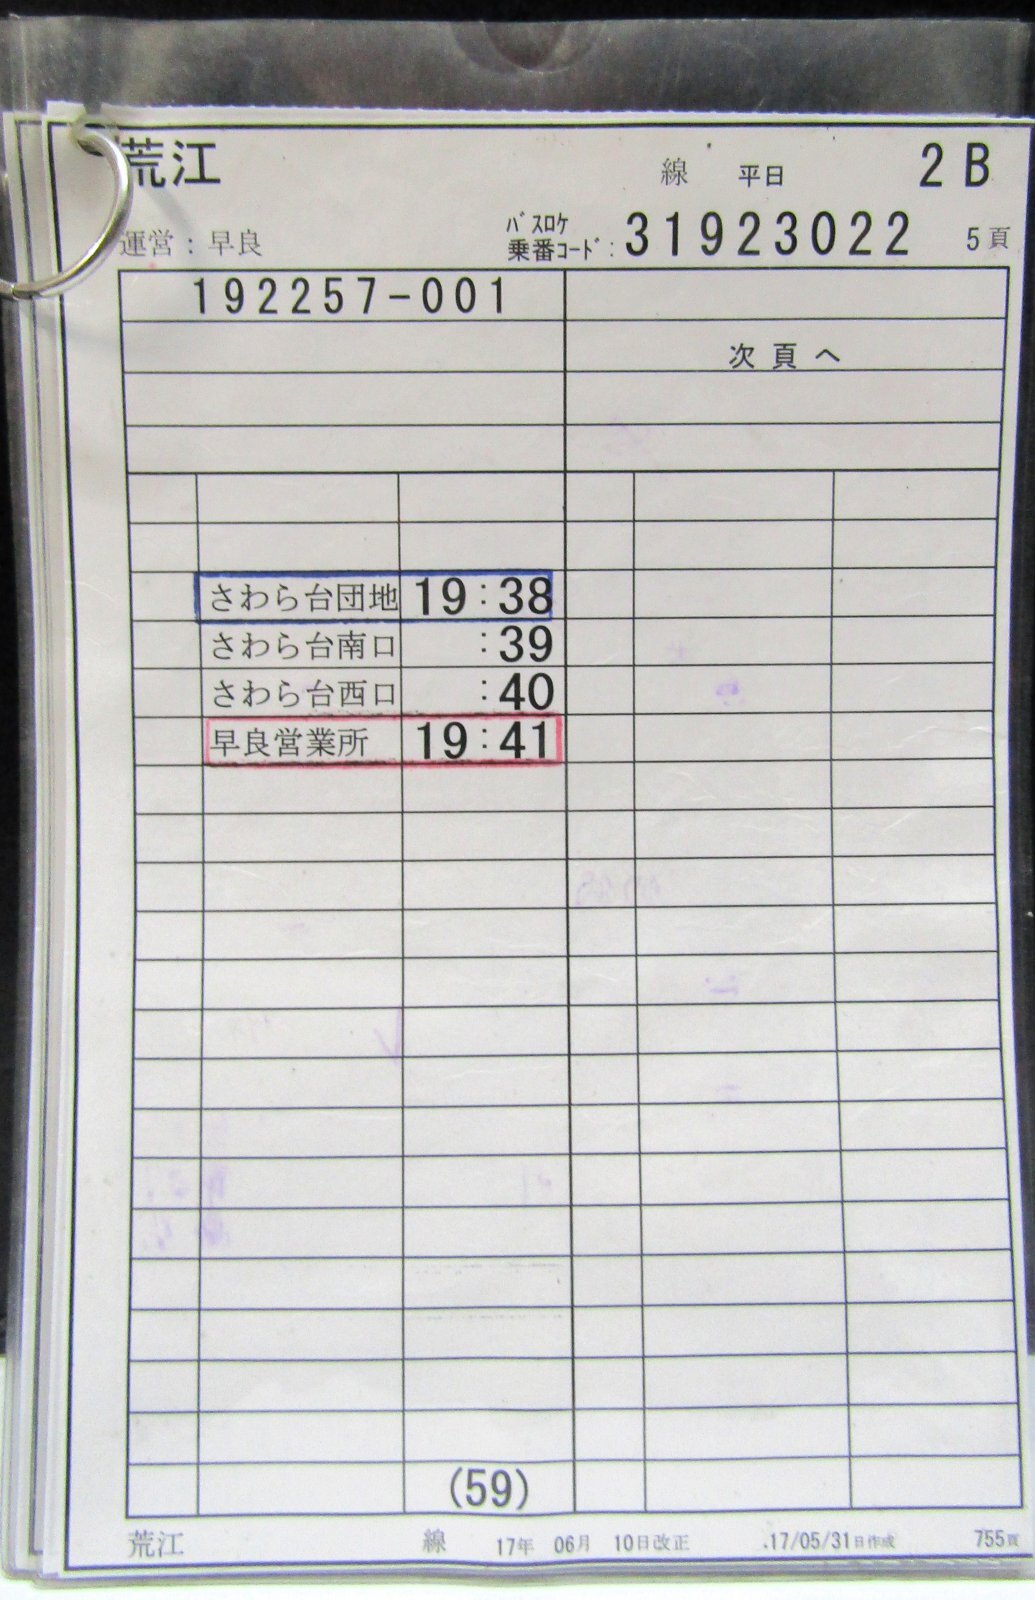 荒江 線 平日 2B
運営：早良 バスロケ乗番コード：31923022 5頁
192257-001
次頁へ
さわら台団地 19:38
さわら台南口 :39
さわら台西口 :40
早良営業所 19:41
(59)
荒江 線 17年 06月 10日改正 .17/05/31日作成 755頁